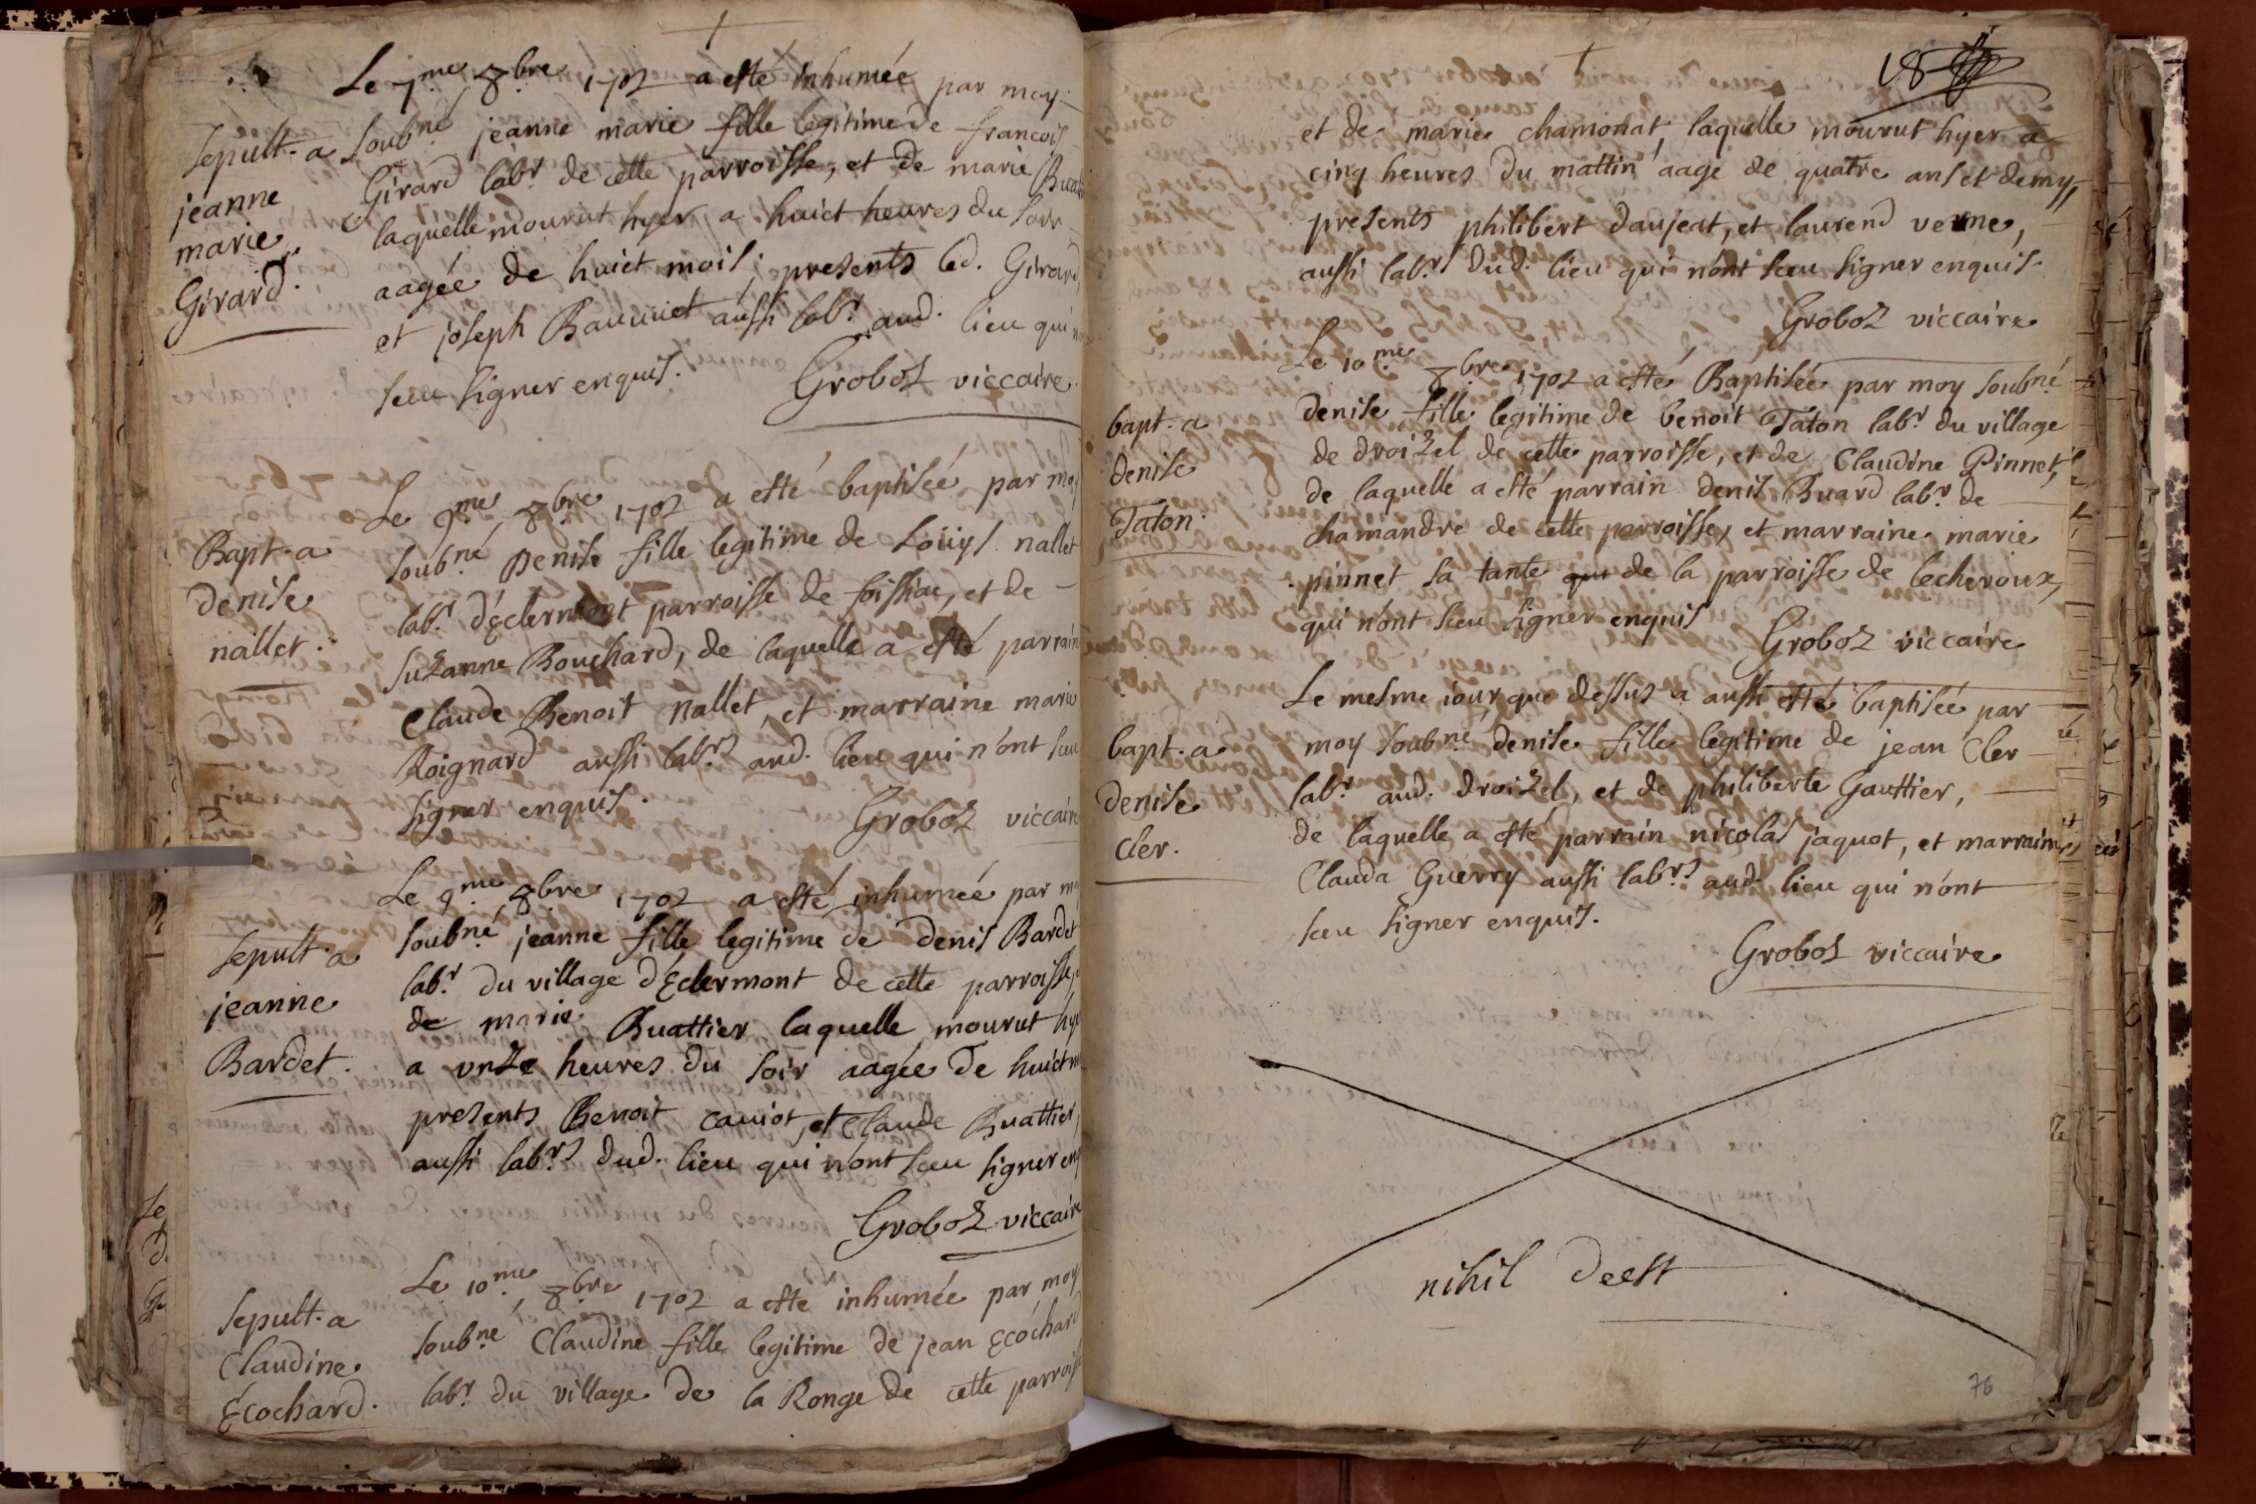 Le 7.me 8.bre 1702 a esté inhumée par moy
Sepult. a
jeanne
marie
Girard.
soub.né jeanne marie fille legitime de francois
Girard lab.r de cette parroisse, et de marie
laquelle mourut hyer a huict heures du soir
aagée de huict mois; presents led. Girard,
et joseph aussi lab.r aud. lieu qui
sceu signer enquis.
Groboz viccaire.
Bapt. a
denise
nallet.
Le 9.me 8.bre 1702 a esté baptisée par moy
soub.né Denise fille legitime de Loüys nallet
lab.r d'Éclermont parroisse de foissiac, et de
Suzanne Bouchard, de laquelle a esté parrain
Claude Benoit nallet, et marraine marie
Roignard aussi lab.rs aud. lieu qui n'ont sceu
signer enquis.
Groboz viccaire
Sepult. a
jeanne
Bardet.
Le 9.me 8.bre 1702 a esté inhumée par
soub.né jeanne fille legitime de Denis Bardet
lab.r du village d'Eclermont de cette parroisse,
de marie Buattier laquelle mourut hyer
a unze heures du soir aagée de huict
presents Benoit caviot, et Claude Buattier,
aussi lab.rs dud. lieu qui n'ont sceu signer
Groboz viccaire
Sepult. a
Claudine
Écochard.
Le 10.me 8.bre 1702 a esté inhumée par moy
soub.né Claudine fille legitime de jean Écochard
lab.r du village de la Ronge de cette parroisse
18
et de marie chamonat, laquelle mourut hyer a
cinq heures du mattin aage de quatre ans et demy,
presents philibert daujeat, et laurend verne,
aussi lab.rs dud. lieu qui n'ont sceu signer enquis.
Groboz viccaire
bapt. a
denise
Taton.
Le 10.me 8.bre 1702 a esté Baptisée par moy soub.né
denise fille legitime de benoit Taton lab.r du village
de droizel de cette parroisse, et de Claudine Pinnet,
de laquelle a esté parrain denis Buard lab.r de
chamandre de cette parroisse, et marraine marie
pinnet sa tante qui de la parroisse de lecheroux,
qui n'ont sceu signer enquis
Groboz viccaire
bapt. a
denise
cler.
Le mesme iour que dessus a aussi esté baptisée par
moy soub.né denise fille legitime de jean Cler
lab.r aud. droizel, et de philiberte Gauttier,
de laquelle a esté parrain nicolas jaquot, et marraine
Clauda Guerry aussi lab.rs aud. lieu qui n'ont
sceu signer enquis.
Groboz viccaire
nihil deest
76